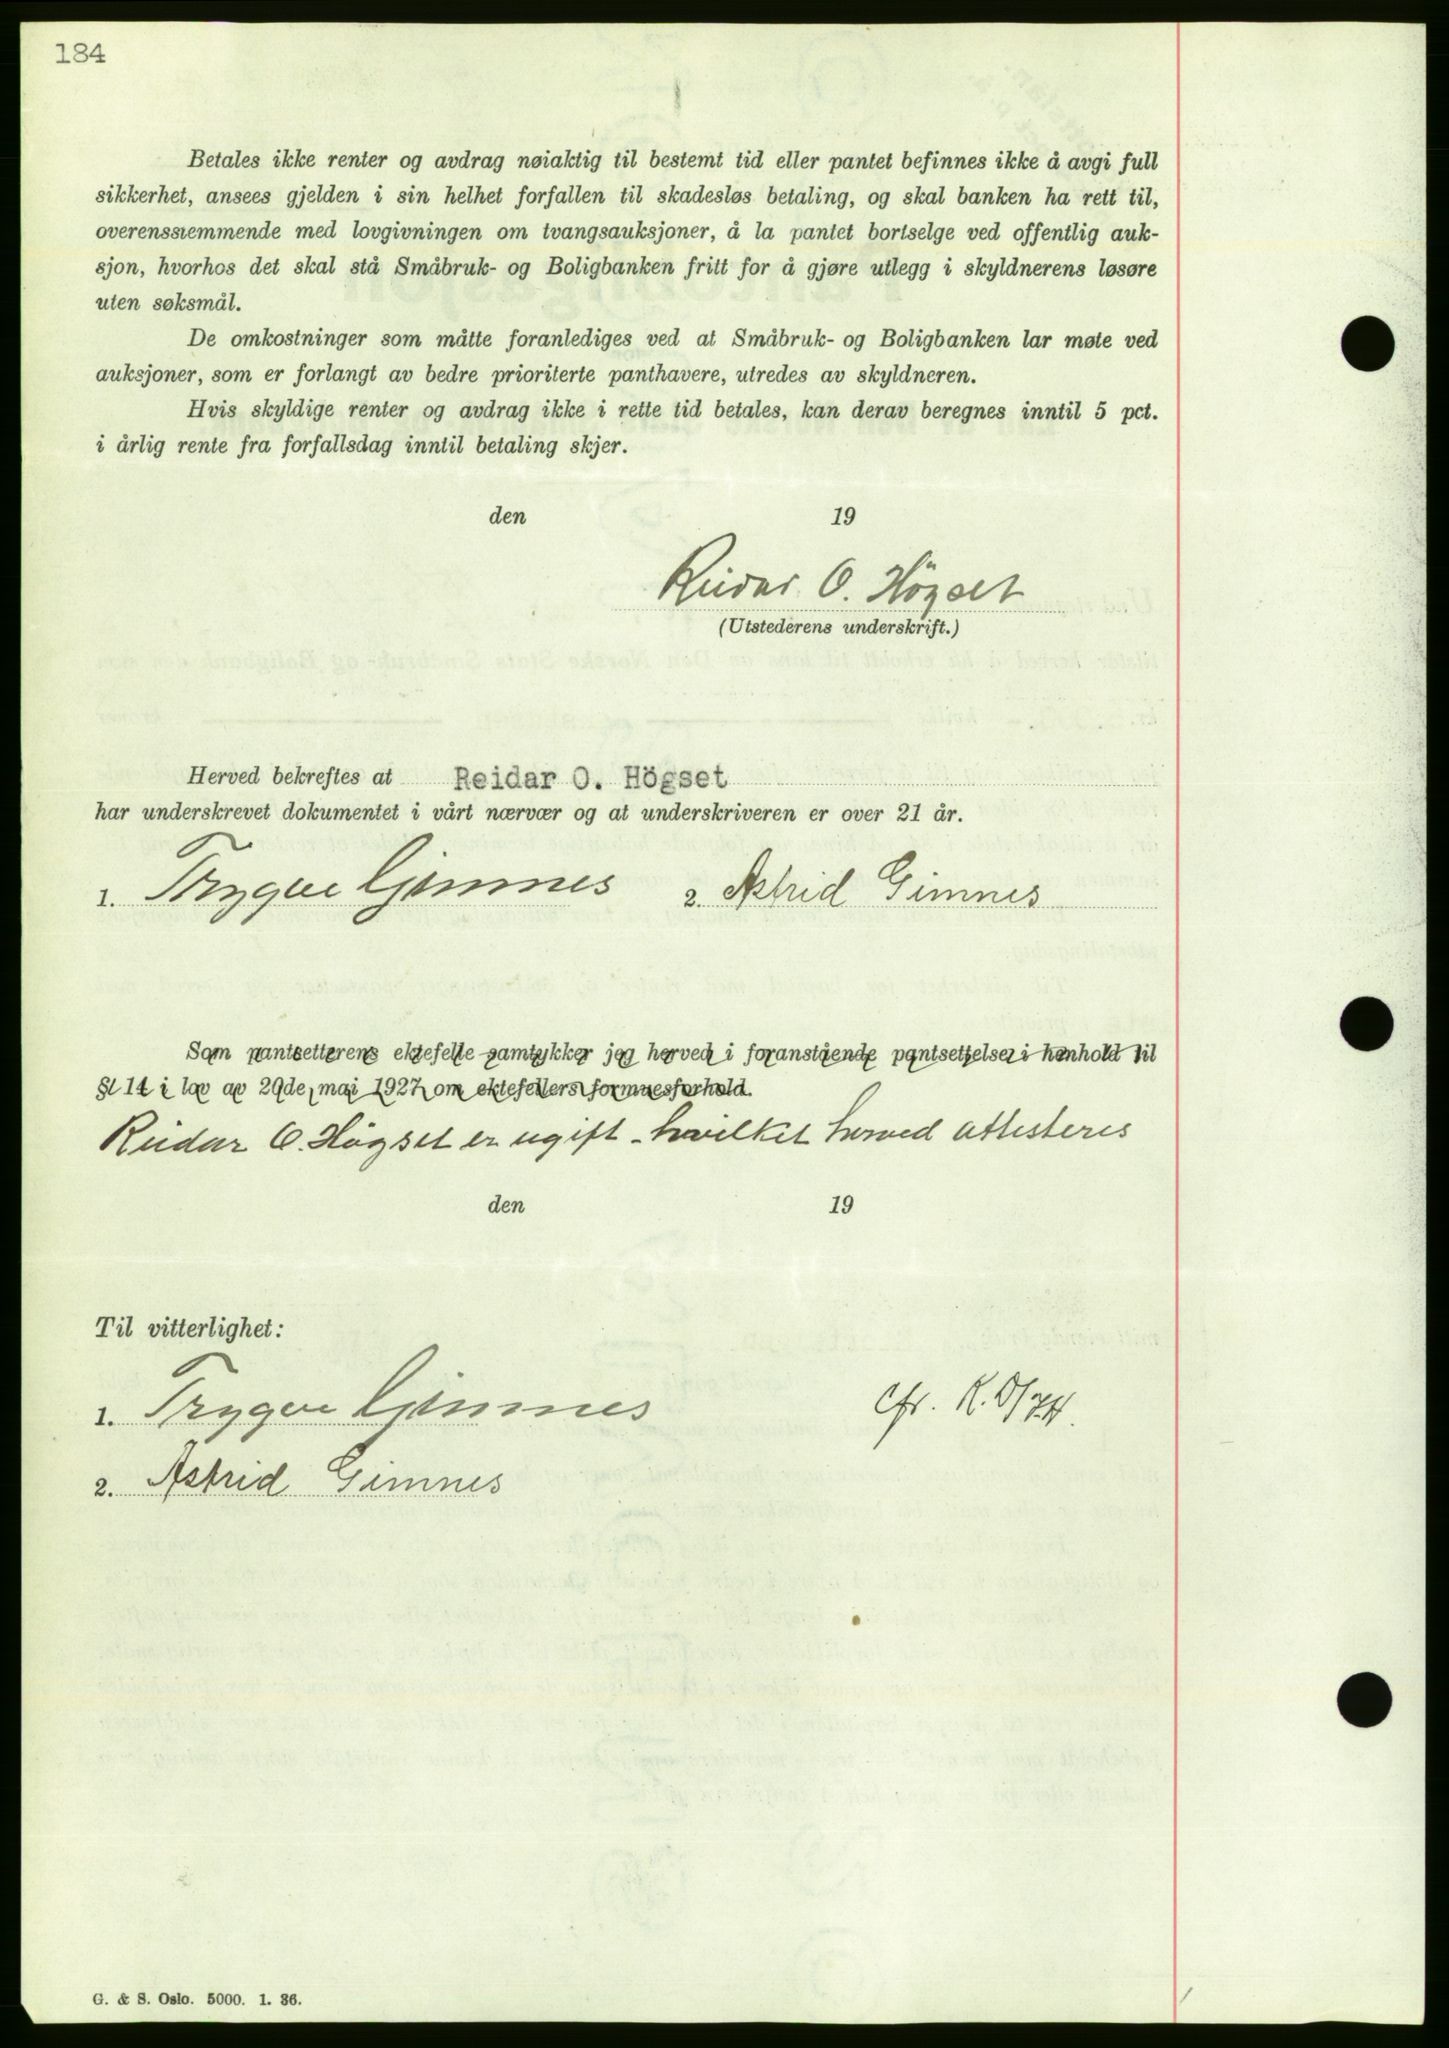 184
Betales ikke renter og avdrag nøiaktig til bestemt tid eller pantet befinnes ikke å avgi full
sikkerhet, ansees gjelden i sin helhet forfallen til skadesløs betaling, og skal banken ha rett til,
overensstemmende med lovgivningen om tvangsauksjoner, å la pantet bortselge ved offentlig auk-
sjon, hvorhos det skal stå Småbruk- og Boligbanken fritt for å gjøre utlegg i skyldnerens løsøre
uten søksmål.
De omkostninger som måtte foranlediges ved at Småbruk- og Boligbanken lar møte ved
auksjoner, som er forlangt av bedre prioriterte panthavere, utredes av skyldneren.
Hvis skyldige renter og avdrag ikke i rette tid betales, kan derav beregnes inntil 5 pct.
i årlig rente fra forfallsdag inntil betaling skjer.
den 19
Reidar O. Högset
(Utstederens underskrift.)
Herved bekreftes at Reidar O. Högset
har underskrevet dokumentet i vårt nærvær og at underskriveren er over 21 år.
1. Trygve Gimnes 2. Astrid Gimnes
Som pantsetterens ektefelle samtykker jeg herved i foranstående pantsettelse i henhold til
§ 14 i lov av 20de mai 1927 om ektefellers formuesforhold.
Reidar O. Högset er ugift - hvilket herved attesteres
den 19
Til vitterlighet:
1. Trygve Gimnes
cfr. K.
2. Astrid Gimnes
G. & S. Oslo. 5000. 1. 36.